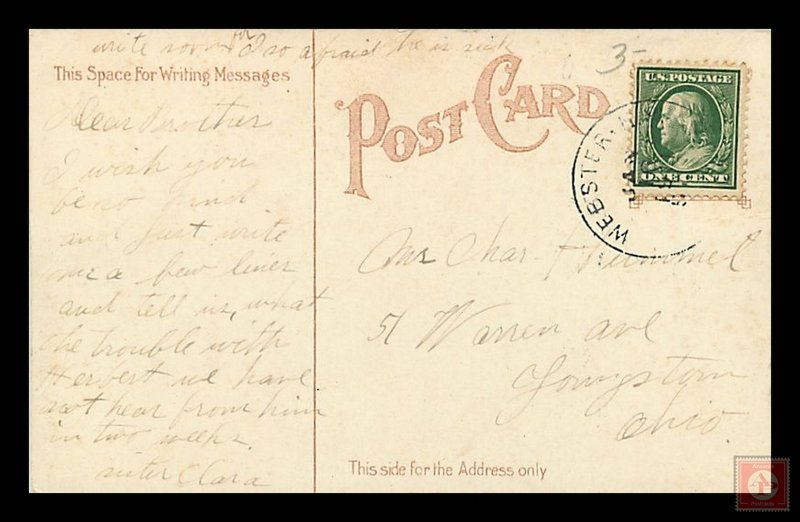 write soon for I so afraid he is sick
This Space For Writing Messages
Dear Brother
I wish you
be so kind
and just write
me a few lines
and tell us, what
the trouble with
Herbert we have
not hear from him
in two weeks.
sister Clara
POST CARD
3-
U.S. POSTAGE
ONE CENT
WEBSTER
JAN
Mr Char. Hummel
51 Warren ave
Youngstown
Ohio.
This side for the Address only